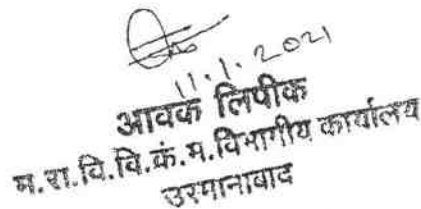 11.1.2021
आवक लिपीक
म.रा.वि.वि.कं.म.विभागीय कार्यालय
उस्मानाबाद